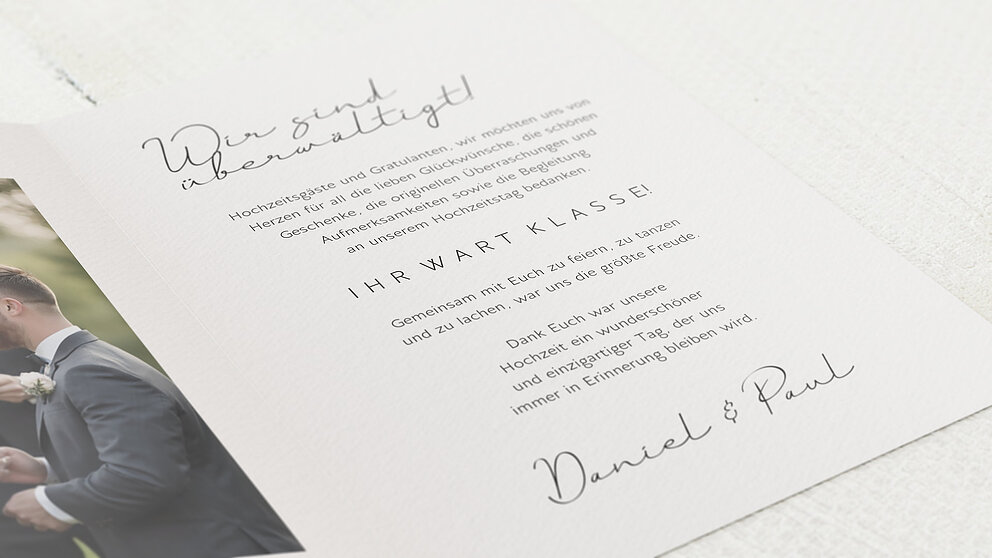 Wir sind
überwältigt!
Hochzeitsgäste und Gratulanten, wir möchten uns von
Herzen für all die lieben Glückwünsche, die schönen
Geschenke, die originellen Überraschungen und
Aufmerksamkeiten sowie die Begleitung
an unserem Hochzeitstag bedanken.
IHR WART KLASSE!
Gemeinsam mit Euch zu feiern, zu tanzen
und zu lachen, war uns die größte Freude.
Dank Euch war unsere
Hochzeit ein wunderschöner
und einzigartiger Tag, der uns
immer in Erinnerung bleiben wird.
Daniel & Paul